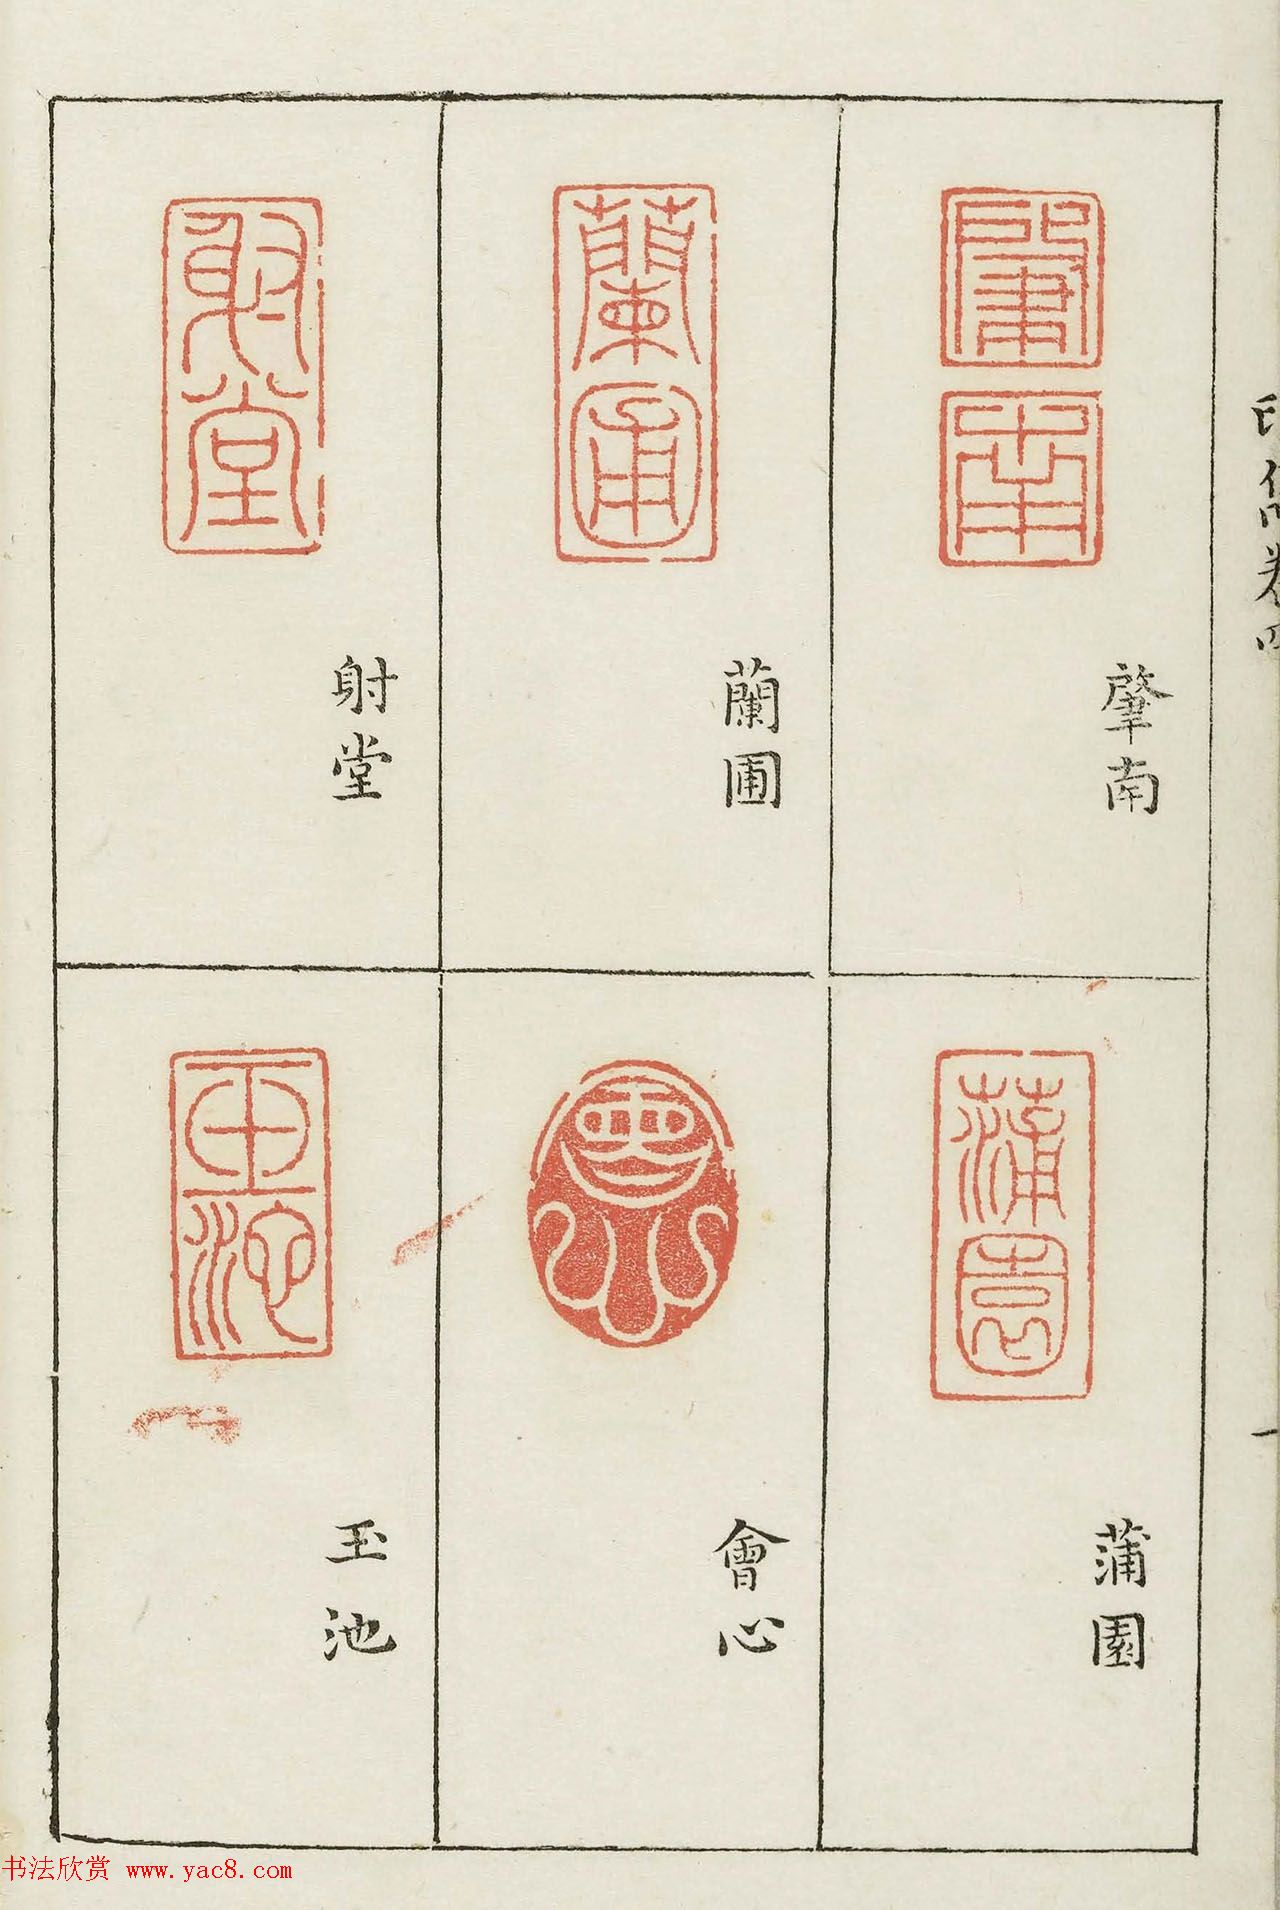 肇南
蘭圃
射堂
蒲園
會心
玉池
一
书法欣赏 www.yac8.com